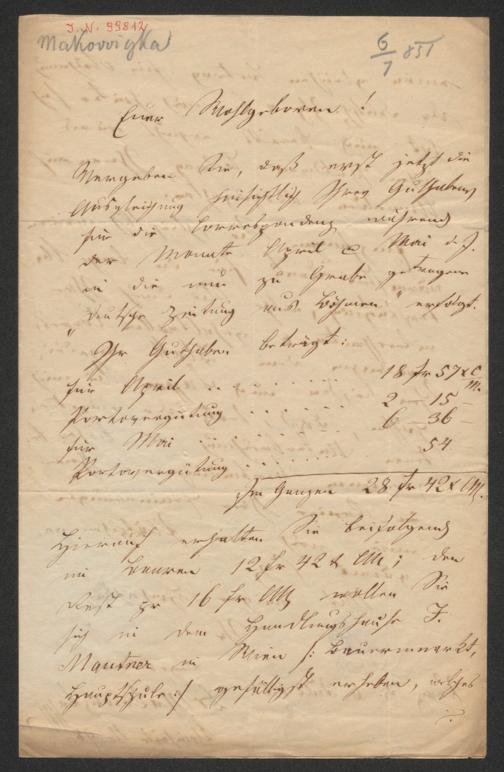 J. N. 99812
Makowizka
6/7 851
Euer Wohlgeboren!
Vergeben Sie, daß erst jetzt die
Ausgleichung hinsichtlich Ihres Guthabens
für die Correspondenz während
der Monate April & Mai d. J.
in die nun zu Grabe getragene
„deutsche Zeitung aus Böhmen“ erfolgt.
Ihr Guthaben beträgt:
für April . . . . . . . 18 fr 57 x C
M.
Portovergütung . . . . . . 2 — 15
für Mai . . . . . . . 6 — 36 —
Portovergütung . . . . . . 54
Im Ganzen 28 fr 42 x CM.
Hierauf erhalten Sie beifolgend
im Baaren 12 fr 42 x CM; den
Rest pr 16 fr CM wollen Sie
sich in dem Handlungshause J.
Mautner in Wien /: Bauernmarkt,
:/ gefälligst erheben, welches